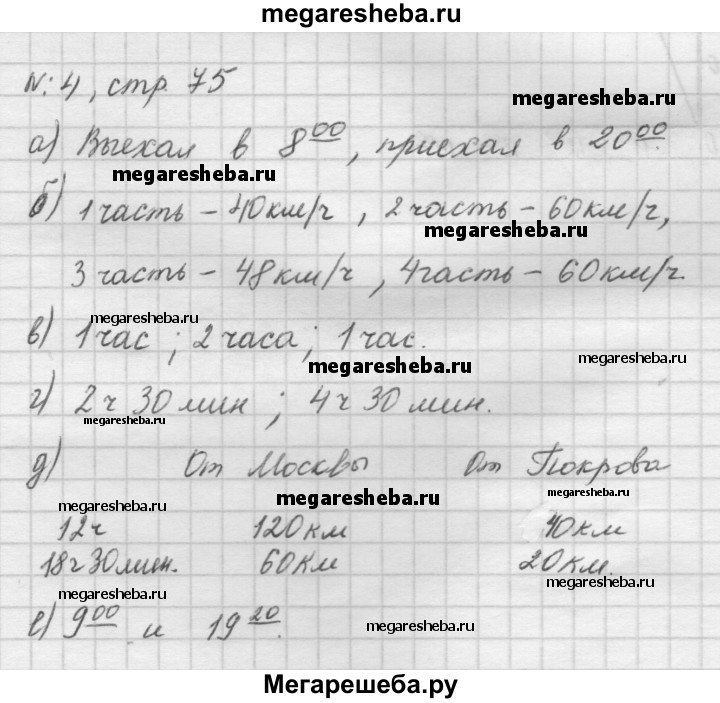 megaresheba.ru
№: 4, стр. 75
megaresheba.ru
а) Выехал в 8⁰⁰, приехал в 20⁰⁰.
megaresheba.ru
б) 1 часть – 40 км/ч, 2 часть – 60 км/ч,
megaresheba.ru
3 часть – 48 км/ч, 4 часть – 60 км/ч.
megaresheba.ru
в) 1 час; 2 часа; 1 час.
megaresheba.ru
megaresheba.ru
г) 2 ч 30 мин; 4 ч 30 мин.
megaresheba.ru
д) От Москвы От Покрова
megaresheba.ru
megaresheba.ru
megaresheba.ru
12 ч 120 км 40 км
18 ч 30 мин. 60 км 20 км.
megaresheba.ru
megaresheba.ru
е) 9⁰⁰ и 19²⁰.
megaresheba.ru
Мегарешеба.ру